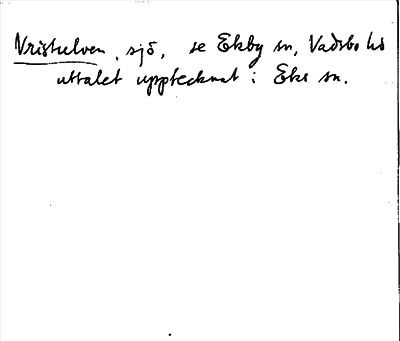 Vristulven, sjö, se Ekby sn, Vadsbo hd
uttalet upptecknat i Eks sn.